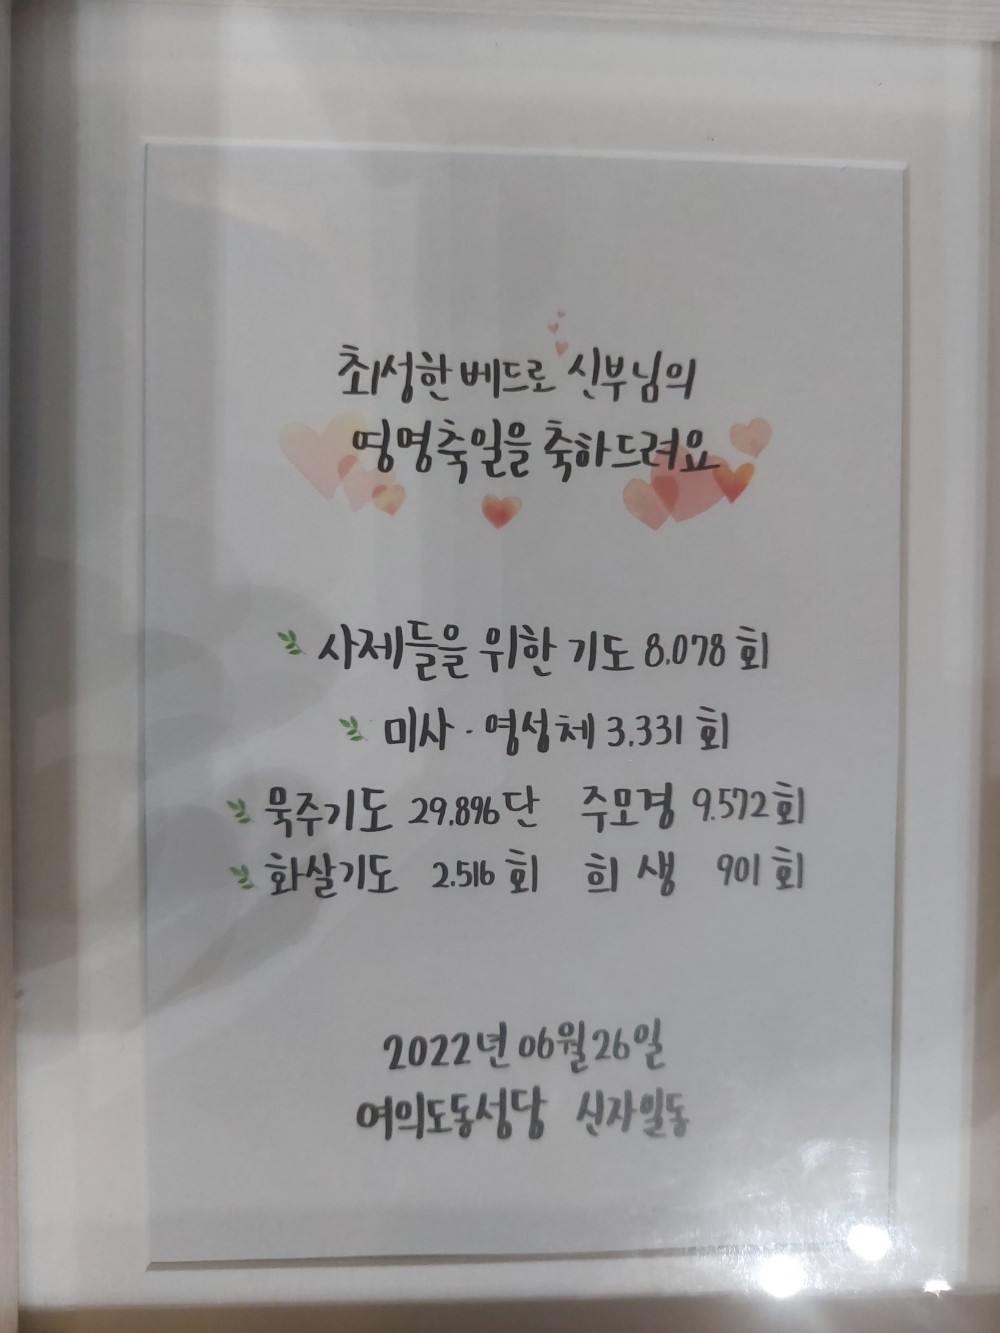 최성한 베드로 신부님의
영명축일을 축하드려요
사제들을 위한 기도 8.078 회
미사 · 영성체 3.331 회
묵주기도 29.896 단 주모경 9.572 회
화살기도 2.516 회 희생 901 회
2022년 06월 26일
여의도동성당 신자일동